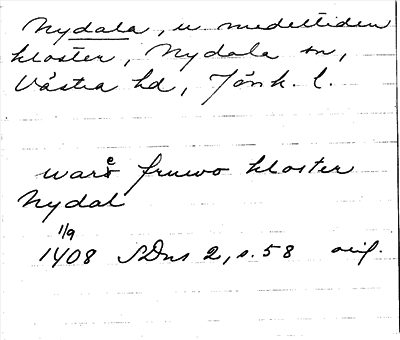 Nydala, u. medeltiden
kloster, Nydala sn,
Västra hd, Jönk. l.
warͤ fruwo kloster
Nydal
1/9
1408 SDns 2, s. 58 orig.